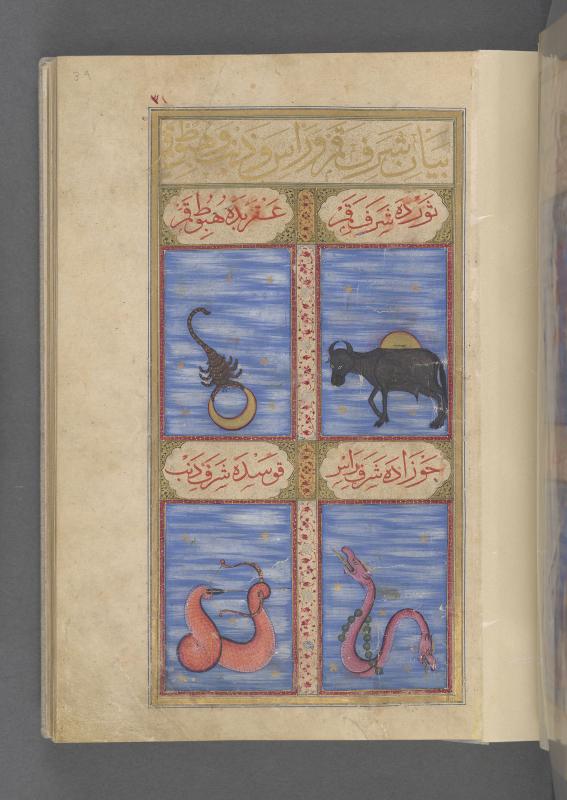 39
٧١
بيان شرف قمر و راس و ذنب و هبوط قمر
ثورده شرف قمر
عقربده هبوط قمر
جوزاده شرف راس
قوسده شرف ذنب